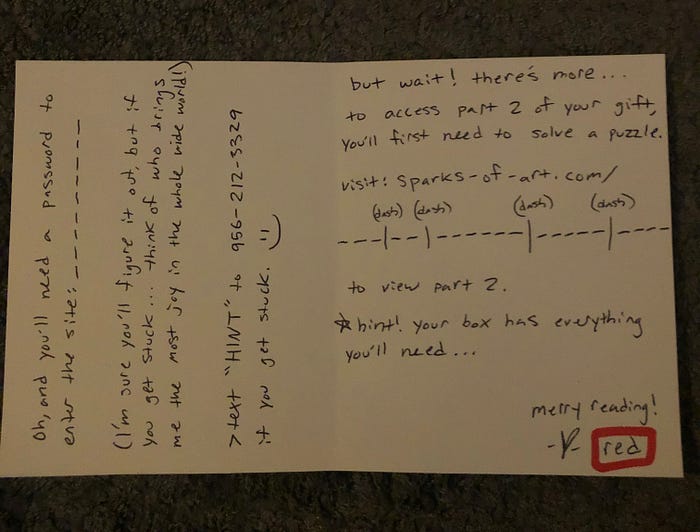 but wait! there's more...
to access part 2 of your gift,
you'll first need to solve a puzzle.
visit: sparks-of-art.com/
(dash) (dash) (dash) (dash)
_ _ _ | _ _ | _ _ _ _ _ _ | _ _ _ _ _ | _ _ _ _
to view part 2.
* hint! your box has everything
you'll need...
merry reading!
-V- red
Oh, and you'll need a password to
enter the site: _ _ _ _ _ _ _ _ _
(I'm sure you'll figure it out, but if
you get stuck... think of who brings
me the most joy in the whole wide world!)
>text "HINT" to 956-212-3329
if you get stuck. :)